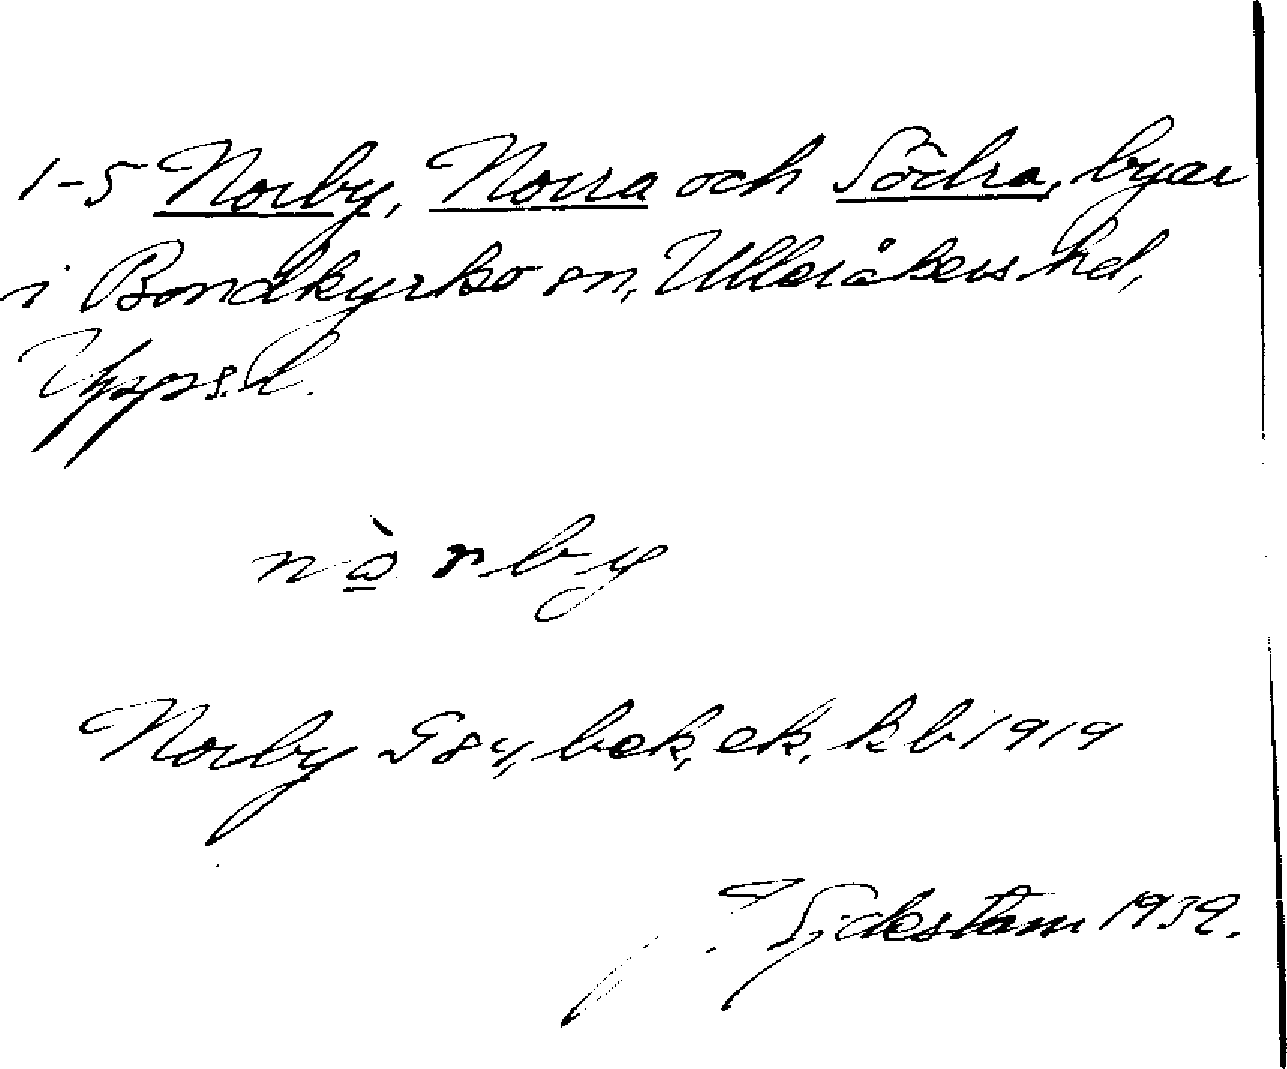 1-5 Norby, Norra och Södra, byar
i Bondkyrko sn, Ulleråkers hd,
Upps. l.
nò̱rby
Norby Gsy, bek, ek, kb 1919
1939.